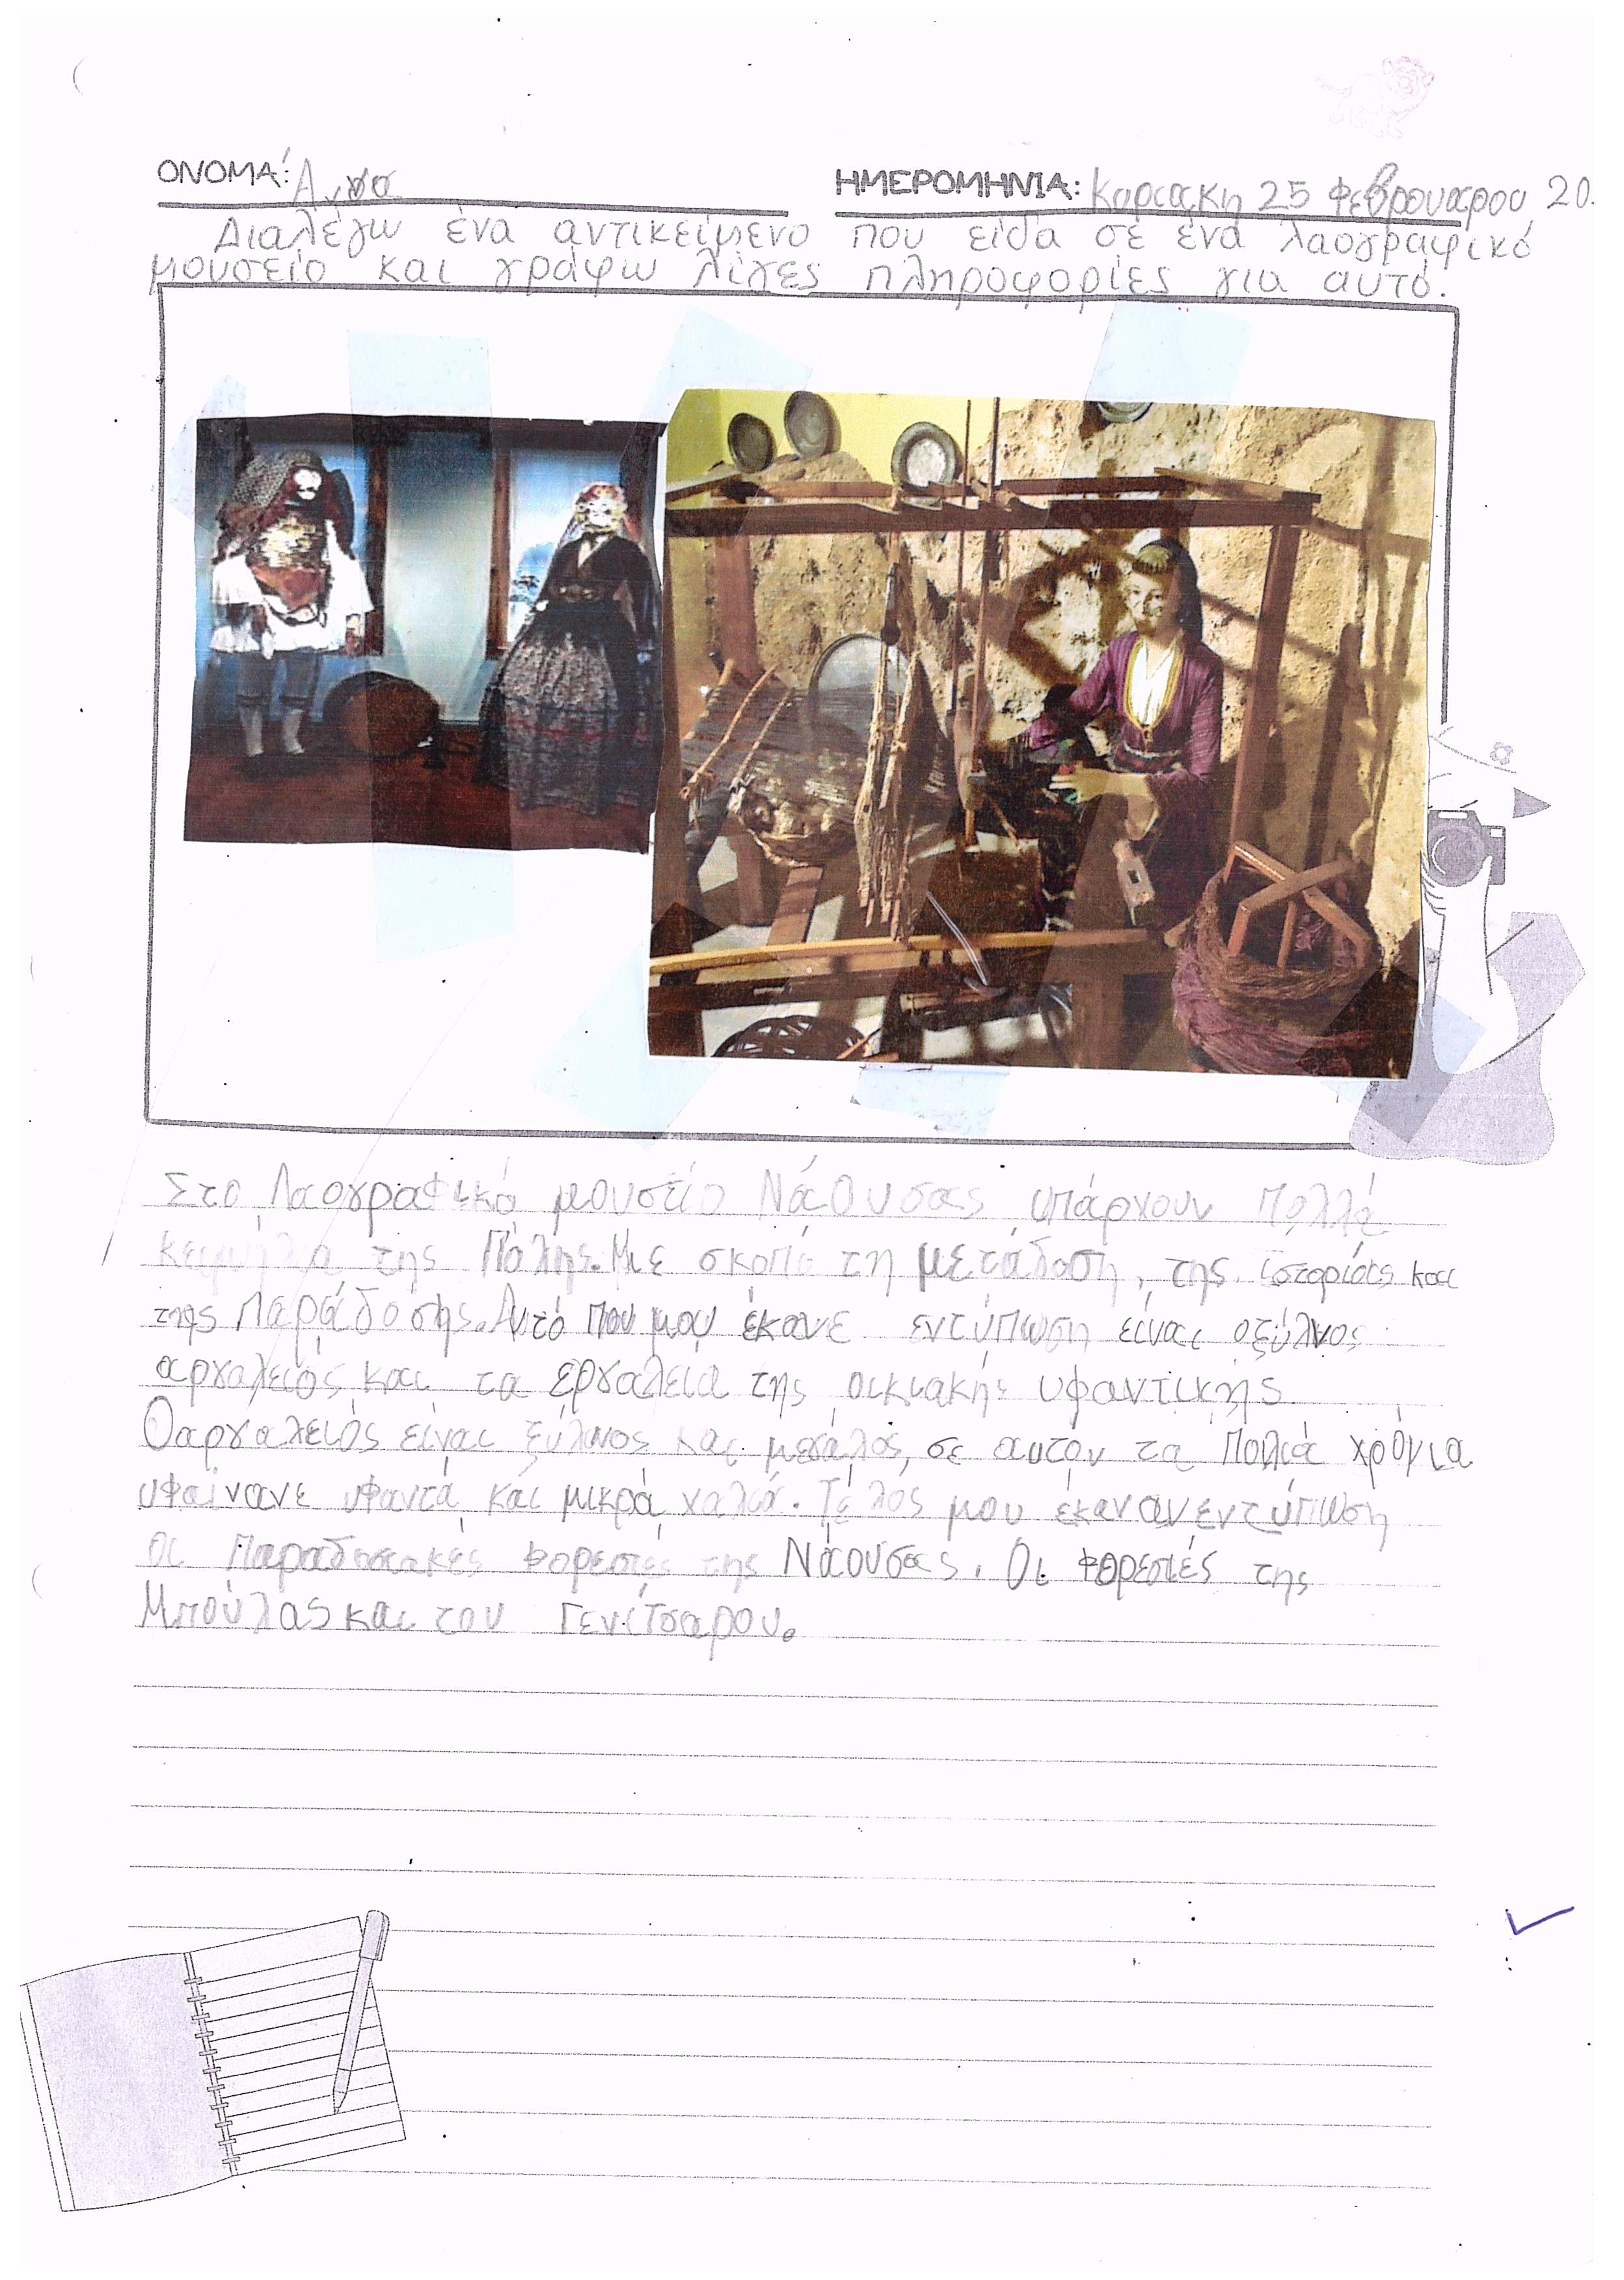 ΟΝΟΜΑ: Άννα
ΗΜΕΡΟΜΗΝΙΑ: Κυριακη 25 Φεβρουαρου 20
Διαλέγω ένα αντικείμενο που είδα σε ένα λαογραφικό
μουσείο και γράφω λίγες πληροφορίες για αυτό.
Στο Λαογραφικό μουσείο Νάουσας υπάρχουν πολλά
κειμήλια της Πόλης. Με σκοπό τη μετάδοση, της ιστορίας και
της Παράδοσης. Αυτό που μου έκανε εντύπωση είναι οξύλινος
αργαλειός και τα εργαλεία της οικιακής υφαντικής.
Οαργαλειός είναι ξύλινος και μεγάλος, σε αυτόν τα Παλιά χρόνια
υφαίνανε υφαντά και μικρά χαλιά. Τέλος μου έκαναν εντύπωση
οι παραδοσιακές φορεσιές της Νάουσας. Οι φορεσιές της
Μπούλας και του Γενίτσαρου.